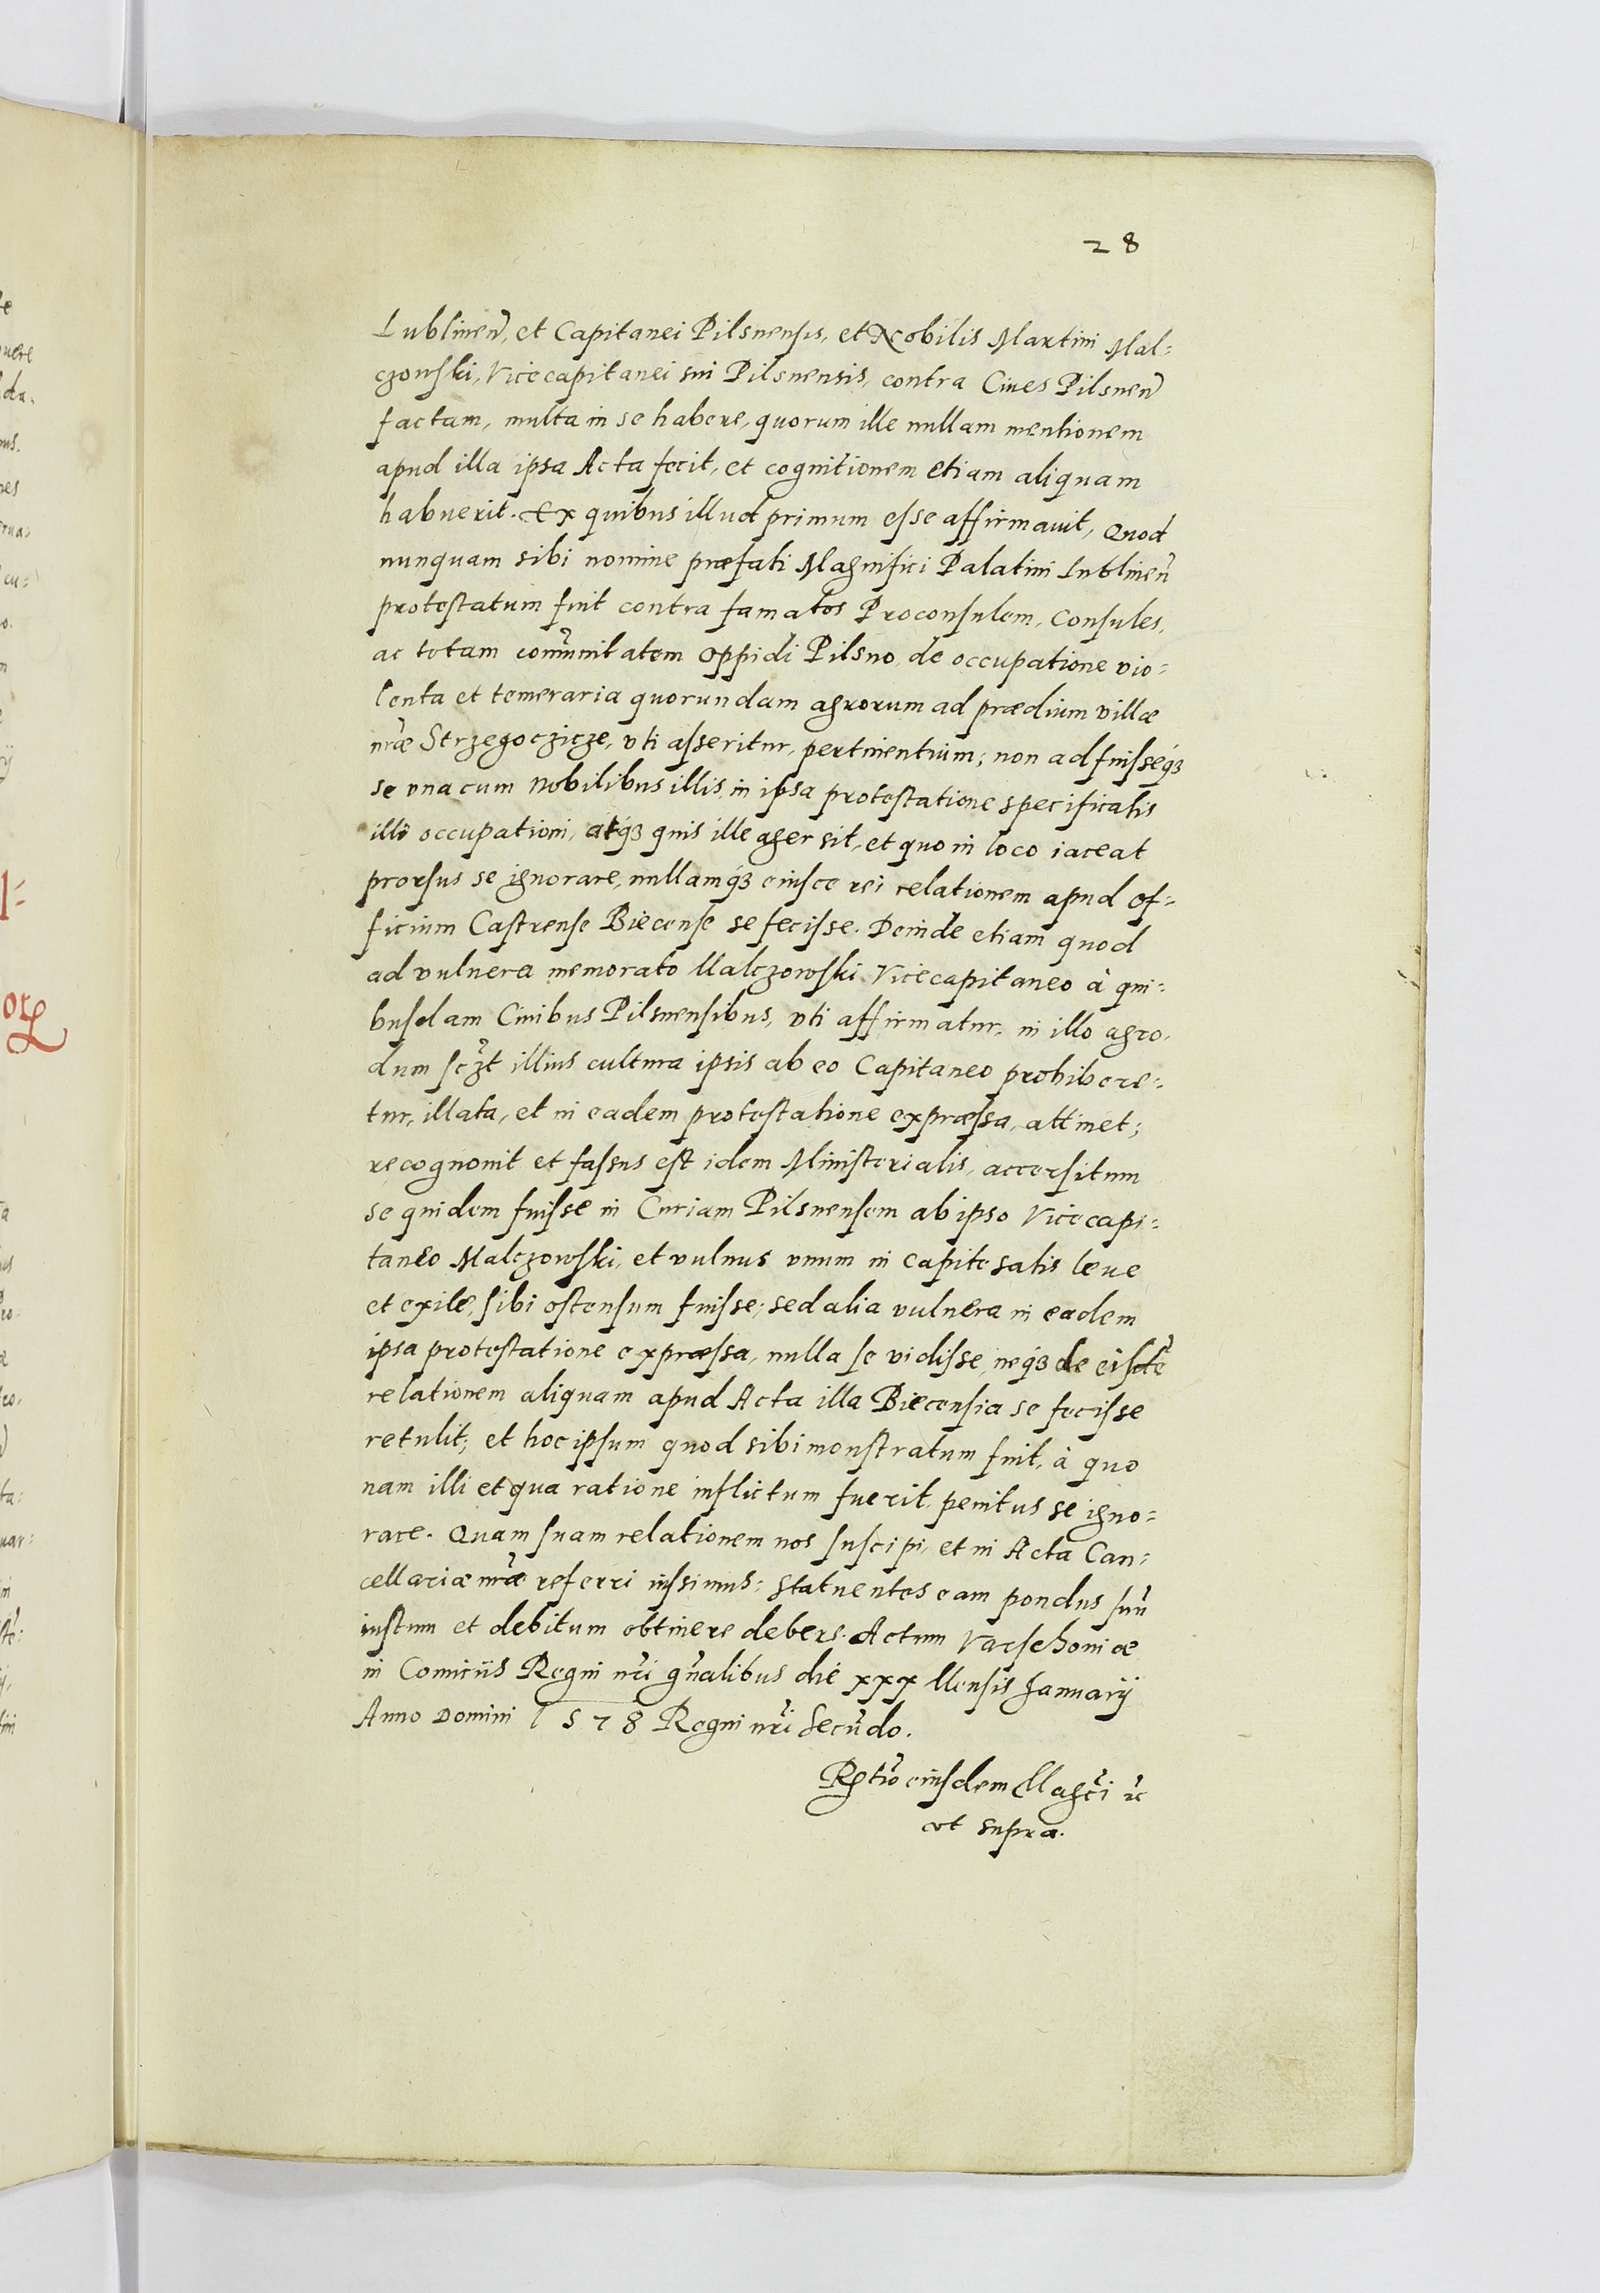 28
Lublinen̄, et Capitanei Pilsnensis, et Nobilis Martini Mal=
czowſki, Vicecapitanei sui Pilsnensis, contra Ciues Pilsnen̄
factam, multa in se habere, quorum ille nullam mentionem
apud illa ipsa Acta fecit, et cognitionem etiam aliquam
habuerit. Ex quibus illud primum eſse affirmauit, Quod
nunquam sibi nomine præfati Magnifici Palatini Lublinen̄
proteſtatum fuit contra famatos Proconſulem, Conſules,
ac totam com̄unitatem Oppidi Pilsno, de occupatione vio=
lenta et temeraria quorundam agrorum ad prædium villæ
nr̄æ Strzegoczicze, vti aſseritur, pertinentium; non adfuiſseq́ꝫ
se vna cum Nobilibus illis, in ipsa proteſtatione specificatis
illi occupationi, atq́ꝫ quis ille ager sit, et quo in loco iaceat
prorſus se ignorare, nullamq́ꝫ eiuſce rei relationem apud Of=
ficium Caſtrenſe Biecenſe se feciſse. Deinde etiam quod
ad vulnera memorato Malczowſki Vicecapitaneo à qui=
buſdam Ciuibus Pilsnenſibus, vti affirmatur, in illo agro,
dum ſczt̄ illius cultura ipsis ab eo Capitaneo prohibere=
tur, illata, et in eadem proteſtatione expræſsa, attinet;
recognouit et faſsus eſt idem Miniſterialis, accerſitum
se quidem fuiſse in Curiam Pilsnenſem ab ipso Vicecapi=
taneo Malczowſki, et vulnus vnum in capite satis leue
et exile, ſibi oſtenſum fuiſse; sed alia vulnera in eadem
ipsa proteſtatione expræſsa, nulla ſe vidiſse, neq́ꝫ de eiſdē
relationem aliquam apud Acta illa Biecenſia se feciſse
retulit; et hoc ipſum quod sibi monſtratum fuit, à quo
nam illi et qua ratione inflictum fuerit, penitus se igno=
rare. Quam ſuam relationem nos ſuſcipi, et in Acta Can=
cellariæ nr̄æ referri iuſsimus: Statuentes eam pondus ſuū
iuſtum et debitum obtinere debere. Actum Varſchouiæ
in Comitiis Regni nr̄i gn̄alibus die xxx Menſis Januarij
Anno Domini 1578 Regni nr̄i Secūdo.
Rel̄tio eiuſdem Mag̃ci ꝛc̄
vt supra.